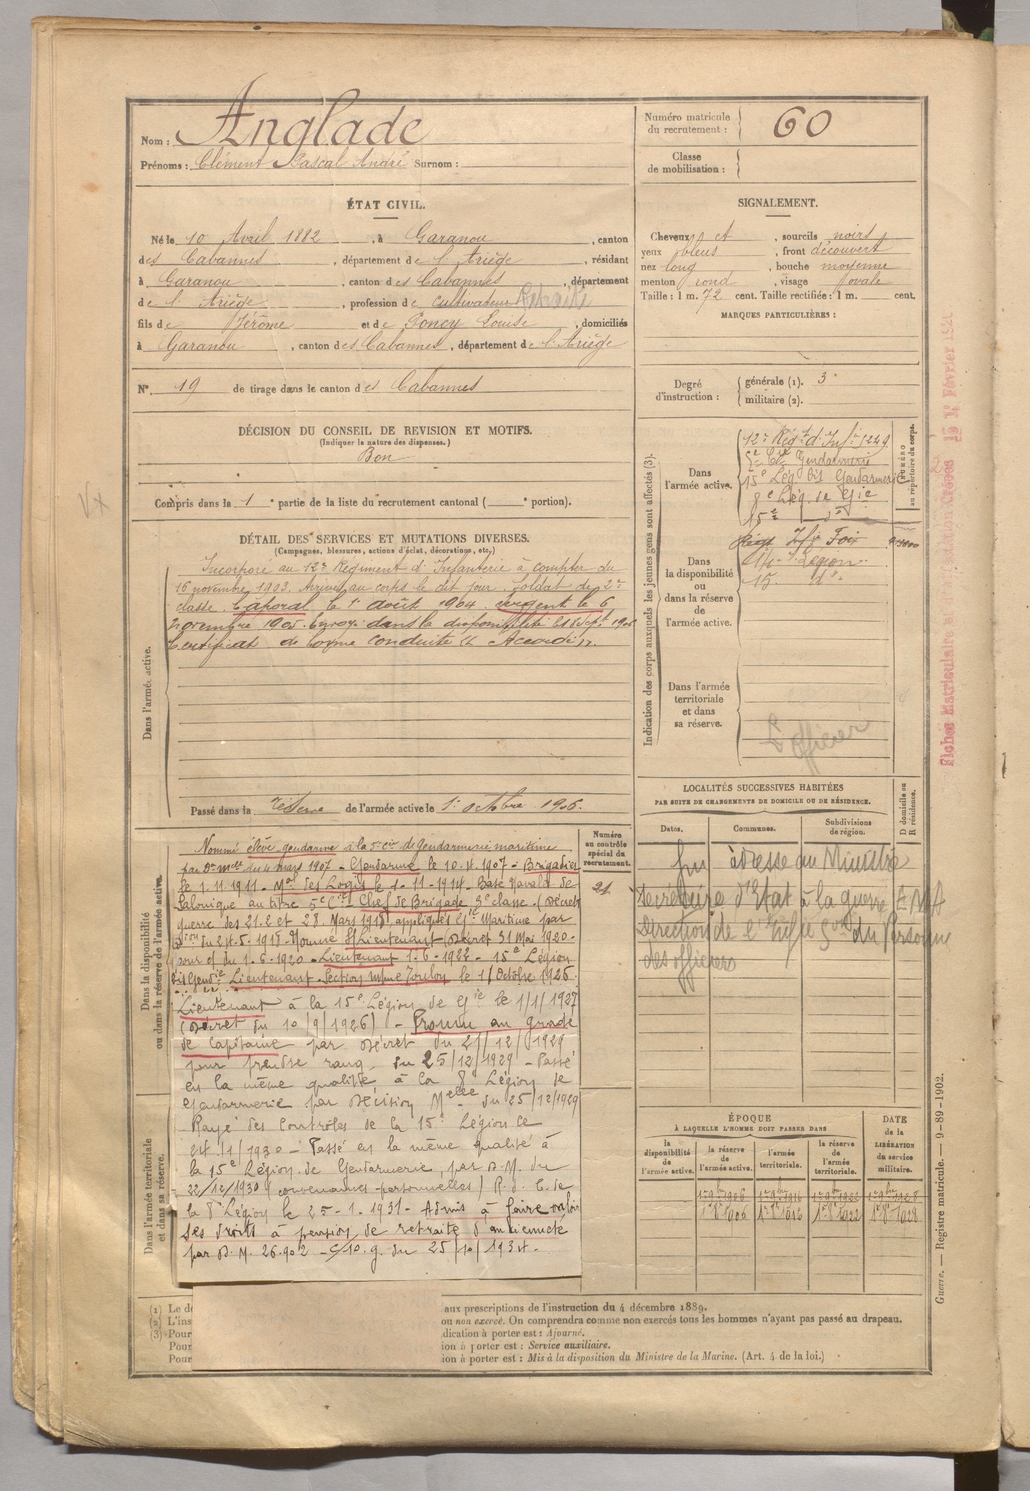 Nom : Anglade
Prénoms : Clément Pascal André Surnom :
Numéro matricule du recrutement : 60
Classe de mobilisation :
ÉTAT CIVIL.
Né le 10 Avril 1882, à Garanou, canton
des Cabannes, département de l'Ariège, résidant
à Garanou, canton des Cabannes, département
de l'Ariège, profession de cultivateur Retraité
fils de Jérôme et de Poncy Louise, domiciliés
à Garanou, canton des Cabannes, département de l'Ariège
N° 19 de tirage dans le canton des Cabannes
SIGNALEMENT.
Cheveux et, sourcils noirs
yeux bleus, front découvert
nez long, bouche moyenne
menton rond, visage ovale
Taille : 1 m. 72 cent. Taille rectifiée : 1 m. cent.
MARQUES PARTICULIÈRES :
Degré d'instruction : générale (1). 3
militaire (2).
DÉCISION DU CONSEIL DE REVISION ET MOTIFS.
(Indiquer la nature des dispenses.)
Bon
Compris dans la 1e partie de la liste du recrutement cantonal ( e portion).
DÉTAIL DES SERVICES ET MUTATIONS DIVERSES.
(Campagnes, blessures, actions d'éclat, décorations, etc.)
Dans l'armée active.
Incorporé au 12e Régiment d'Infanterie à compter du
16 novembre 1903. Arrivé au corps le dit jour. Soldat de 2e
classe. Caporal le 1er août 1904. Sergent le 6
novembre 1905. Envoyé dans la disponibilité le 18 Sept 1906
Certificat de bonne conduite "Accordé".
Passé dans la réserve de l'armée active le 1er octobre 1906.
Indication des corps auxquels les jeunes gens sont affectés (3).
NUMÉRO au répertoire du corps.
Dans l'armée active.
12e Régt d'Infie 5249
5e Cie Gendarmerie
15e Lég bis Gendarmerie
8e Lég. de Gie
15e d°
Dans la disponibilité ou dans la réserve de l'armée active.
Régt Foix
14e Légion
15 d°
Dans l'armée territoriale et dans sa réserve.
officier
Dans la disponibilité ou dans la réserve de l'armée active.
Nommé élève gendarme à la 5e Cie de Gendarmerie maritime
par Don melle du 4 mars 1907 - Gendarme le 10.4.1907 - Brigadier
le 1.11.1911 - Mal des Logis le 1-11-1914 - Base Navale de
Salonique au titre 5e Cie - Chef de Brigade 3e classe. (Décret
guerre des 21.2 et 28 Mars 1918 appliqués Gie Maritime par
Don du 25.5.1918 - Nommé S/Lieutenant (Décret 31 Mai 1920 -
pour cf du 1.6.1920 - Lieutenant 1.6.1922 - 15e Légion
bis Gendie Lieutenant Section mme Toulon le 1er Octobre 1926.
Lieutenant à la 15e Légion de Gie le 1/1/1927
(Décret du 10/9/1926) - Promu au grade
de Capitaine par Décret du 21/12/1929
pour prendre rang du 25/12/1929 - Passé
en la même qualité à la 8e Légion de
Gendarmerie par Décision Melle du 25/12/1929
Rayé des contrôles de la 15e Légion le
1/1930 - Passé en la même qualité à
la 15e Légion de Gendarmerie, par D.M. du
22/12/1930 (convenances personnelles) R. d. C. de
la 8e Légion le 25-1-1931 - Admis à faire valoir
ses droits à pension de retraite d'ancienneté
par D.M. 26.902 - C/10.g. du 25/10/1934.
Dans l'armée territoriale et dans sa réserve.
Numéro au contrôle spécial du recrutement.
24
LOCALITÉS SUCCESSIVES HABITÉES
PAR SUITE DE CHANGEMENTS DE DOMICILE OU DE RÉSIDENCE.
Dates. Communes. Subdivisions de région. D domicile ou R résidence.
adresse au Ministre
Secrétaire d'Etat à la guerre
Direction de l' du Personnel
des officiers
ÉPOQUE
À LAQUELLE L'HOMME DOIT PASSER DANS
la disponibilité de l'armée active.
la réserve de l'armée active.
l'armée territoriale.
la réserve de l'armée territoriale.
DATE de la LIBÉRATION du service militaire.
1er 8bre 1906 1er 8bre 1916 1er 8bre 1922 1er 8bre 1928
(1) Le de
(2) L'ins
(3) Pour
Pour
Pour
aux prescriptions de l'instruction du 4 décembre 1889.
ou non exercé. On comprendra comme non exercés tous les hommes n'ayant pas passé au drapeau.
dication à porter est : Ajourné.
ion à porter est : Service auxiliaire.
ion à porter est : Mis à la disposition du Ministre de la Marine. (Art. 4 de la loi.)
Guerre. — Registre matricule. — 9-89-1902.